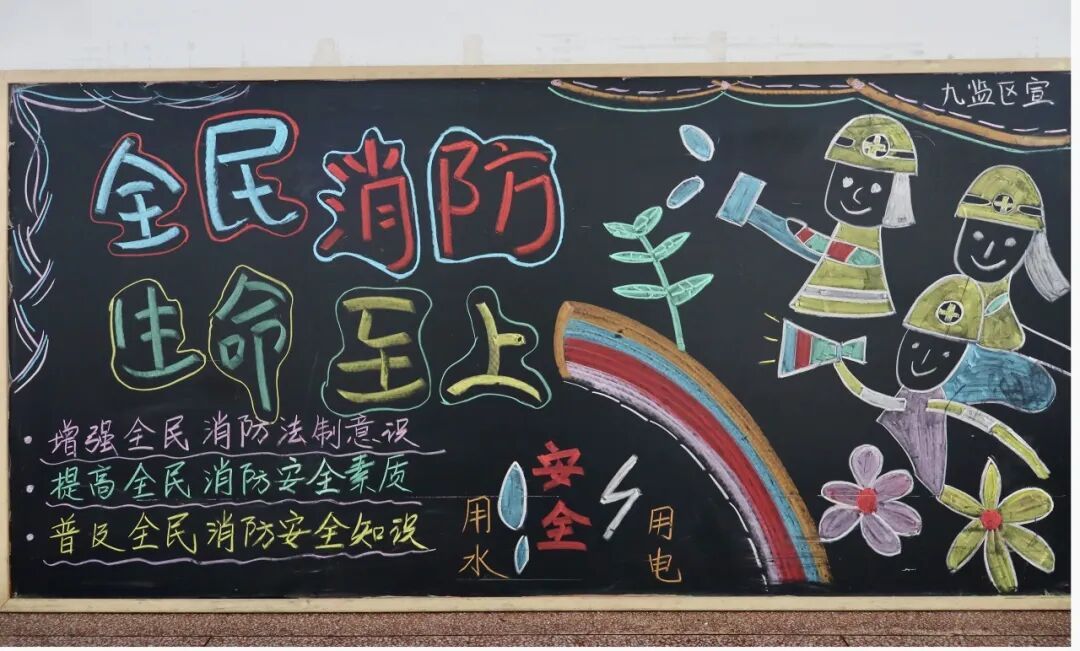 九监区宣
全民消防
生命至上
增强全民消防法制意识
提高全民消防安全素质
普及全民消防安全知识
用水
安全
用电